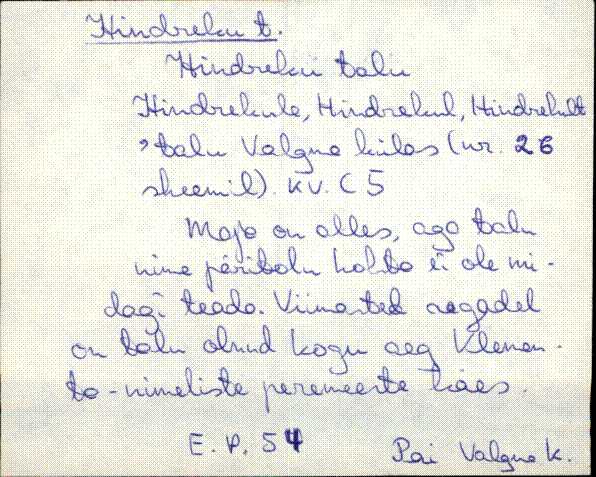 Hindreku t.
Hindreku talu
Hindrekule, Hindrekul, Hindrekult
, talu Valgne külas (nr. 26
skeemil). KV. C 5
Maja on alles, aga talu
nime päritolu kohta ei ole mi-
dagi teada. Viimastel aegadel
on talu olnud kogu aeg Klemen-
ta-nimeliste peremeeste käes.
E. P. 54
Pai Valgne k.